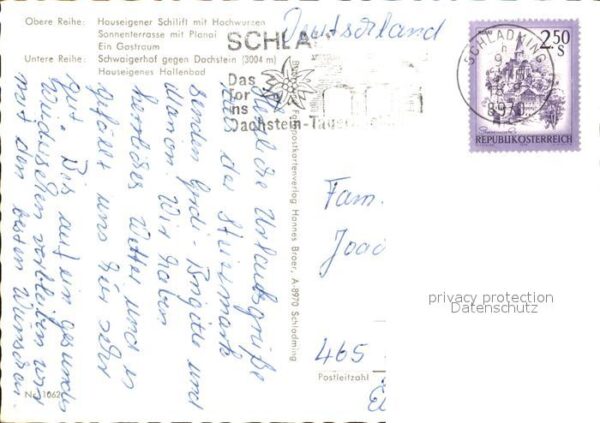 Obere Reihe: Hauseigener Schilift mit Hochwurzen
Sonnenterrasse mit Planai
Ein Gastraum
Untere Reihe: Schwaigerhof gegen Dachstein (3004 m)
Hauseigenes Hallenbad
Deutschland
SCHLA
Das
Tor
ins
Dachstein-Tauern
SCHLADMING
8970
2.50
S
REPUBLIK ÖSTERREICH
Herzliche Urlaubsgrüße
aus der Steiermark
senden Brigitte und
Wir haben
herrliches Wetter und es
gefällt uns hier sehr
gut. Bis auf ein gesundes
Wiedersehen verbleiben wir
mit den besten Wünschen
Postkartenverlag Hannes Broer, A-8970 Schladming
Fam.
Joac
465
Postleitzahl
privacy protection
Datenschutz
Nr. 1062